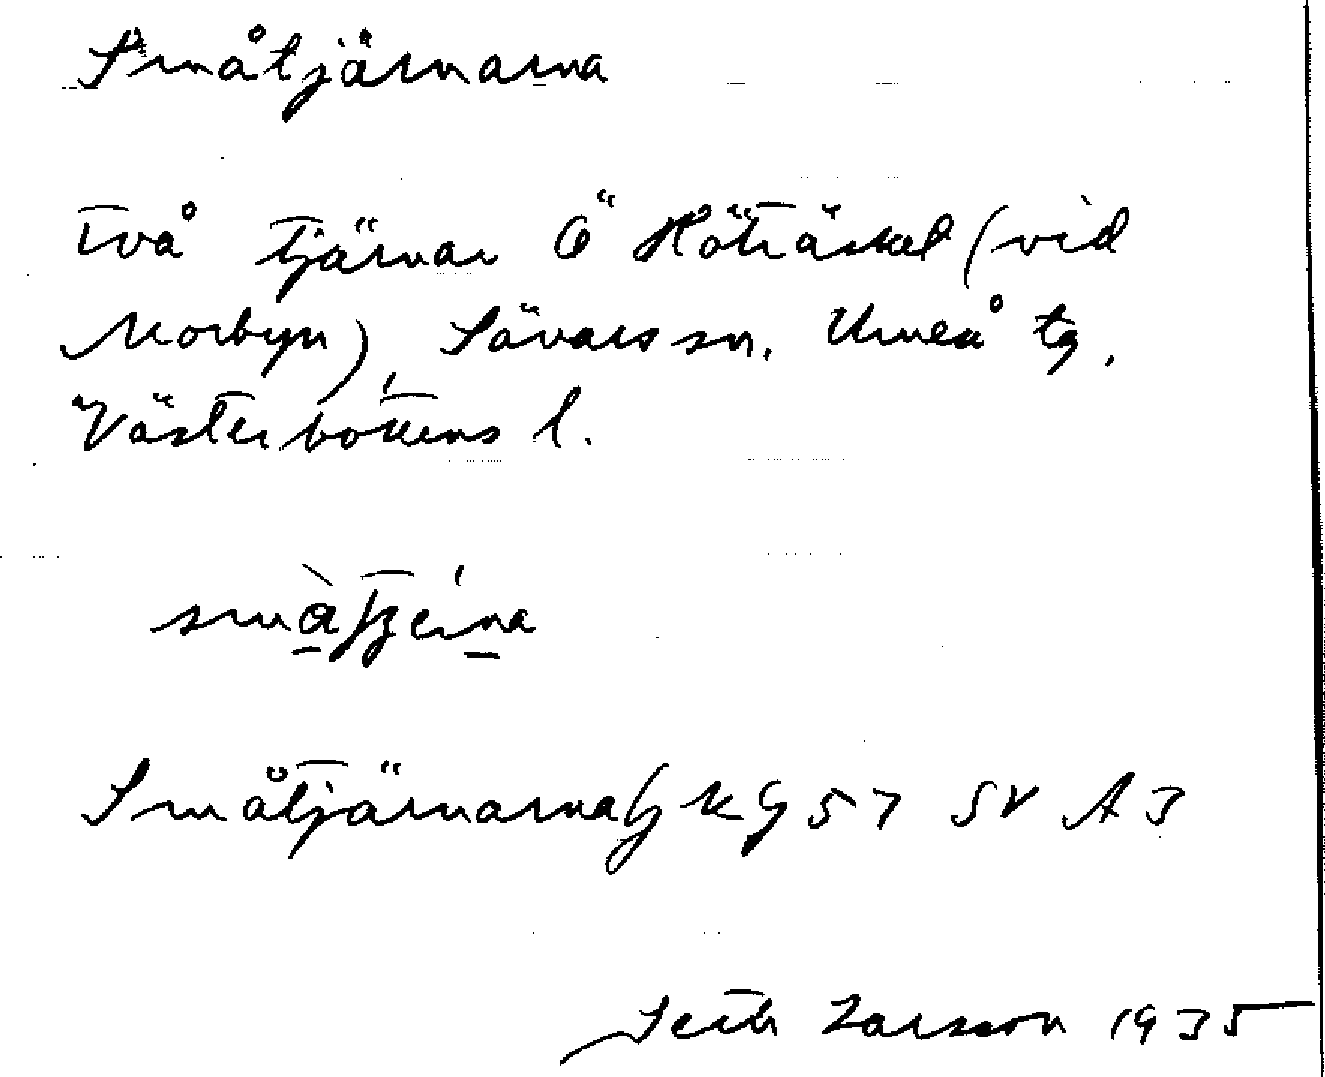 Småtjärnarna
Två tjärnar Ö Höträsket (vid
Morbyn), Sävars sn, Umeå tg,
Västerbottens l.
Småtjärnarna GK 957 SV A3
Seth Larsson 1935